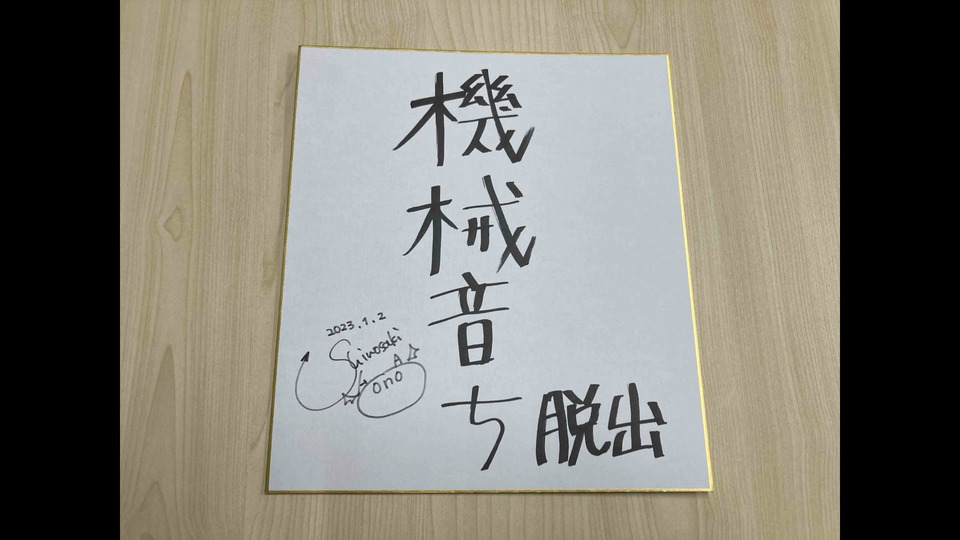 機械音ち
脱出
2023.1.2
Shinosaki
A
ono